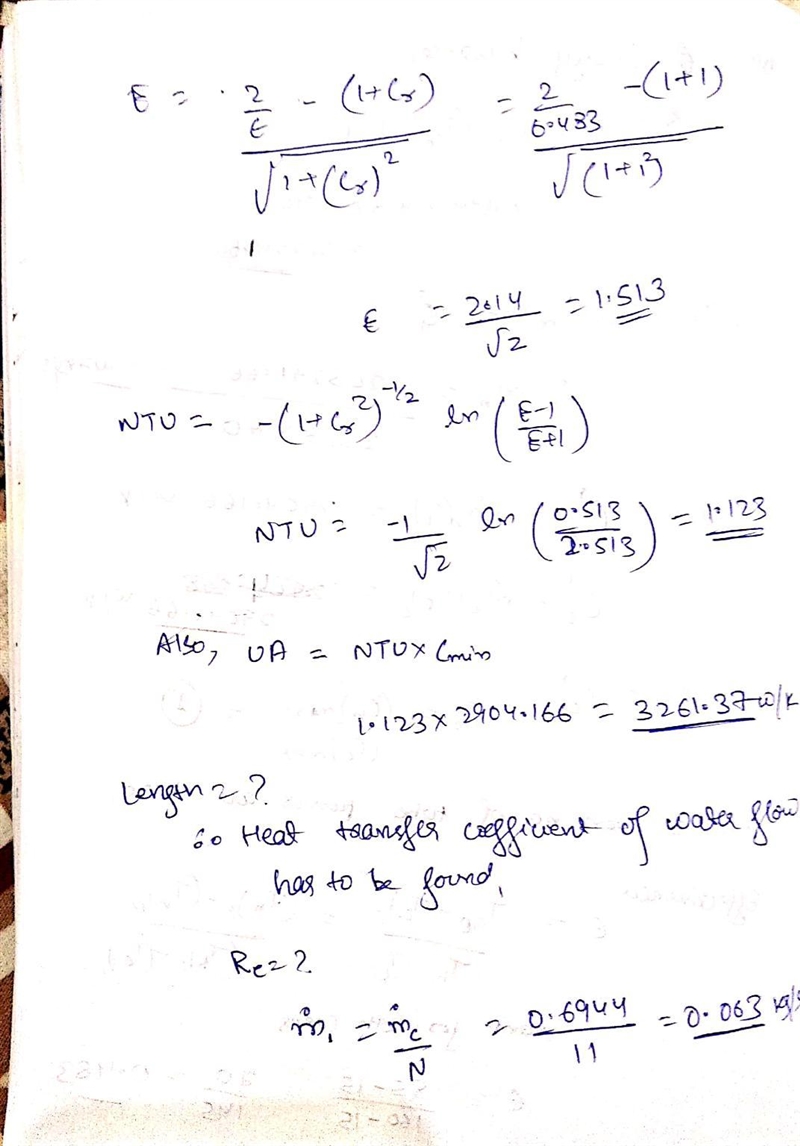 E = 2/ε - (1+Cr) / √1+(Cr)² = 2/0.483 - (1+1) / √(1+1²)
E = 2.14/√2 = 1.513
NTU = -(1+Cr²)^-1/2 ln (E-1/E+1)
NTU = -1/√2 ln (0.513/2.513) = 1.123
Also, UA = NTU x Cmin
1.123 x 2904.166 = 3261.37 W/K
Length = ?
∴ Heat transfer coefficient of water flow
has to be found,
Re = ?
ṁ₁ = ṁc/N = 0.6944/11 = 0.063 kg/s